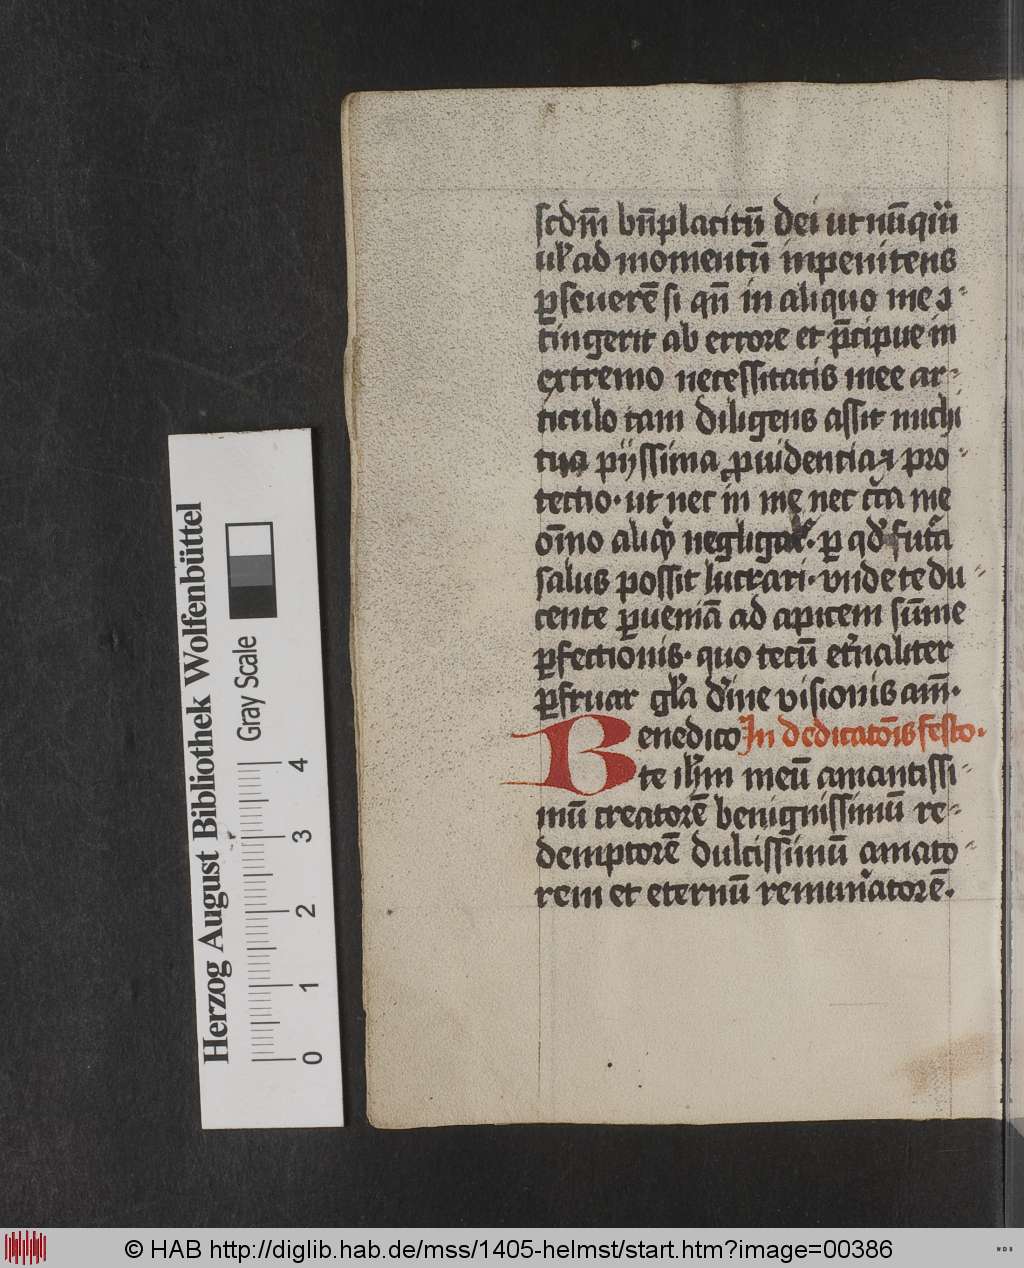 scdm̄ bn̄placitū dei ut nūq̄m
ul' ad momentū inpenitens
ꝑseuerē si qn̄ in aliquo me ↄ-
tingerit ab errore et p̄cipue in
extremo necessitatis mee ar-
ticulo tam diligens assit michi
tua pijssima ꝓuidencia et pro-
tectio· ut nec in me nec cͥca me
om̄o aliqͩ negligat· ꝑ qd' fut'a
salus possit lucrari· vnde te du-
cente ꝑueniā ad apicem sūme
ꝑfectionis· quo tecū et'naliter
ꝑfruar gl'a d'ine visionis am̄·
Benedico In dedicatōis festo·
te ihm̄ meū amantissi-
mū creatorē benignissimū re-
demptorē dulcissimū amato-
rem et eternū remun'atorē·
Herzog August Bibliothek Wolfenbüttel
Gray Scale
0 1 2 3 4
© HAB http://diglib.hab.de/mss/1405-helmst/start.htm?image=00386